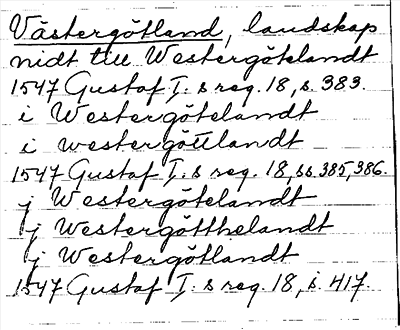 Västergötland, landskap
nidt till Westergötelandt
1547 Gustaf I:s reg. 18, s. 383.
i Westergötelandt
i westergöttlandt
1547 Gustaf I:s reg. 18, ss. 385, 386.
j Westergötelandt
j Westergötthelandt
j Westergötlandt
1547 Gustaf I:s reg. 18, s. 417.